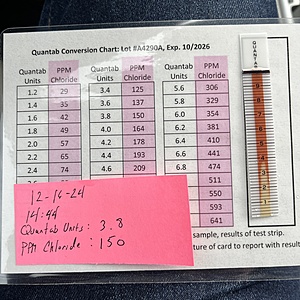 Quantab Conversion Chart: Lot #A4290A, Exp. 10/2026
Quantab Units PPM Chloride Quantab Units PPM Chloride Quantab Units PPM Chloride
1.2 29 3.4 125 5.6 306
1.4 35 3.6 137 5.8 329
1.6 42 3.8 150 6.0 354
1.8 49 4.0 164 6.2 381
2.0 57 4.2 178 6.4 410
2.2 65 4.4 193 6.6 441
2.4 74 4.6 209 6.8 474
511
550
593
641
12-16-24
14:44
Quantab Units: 3.8
PPM Chloride: 150
sample, results of test strip.
ture of card to report with result
QUANTAB
9
8
7
6
5
4
3
2
1